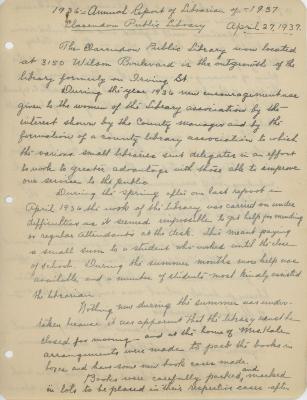 1936 - Annual Report of Librarian of - 1937
Clarendon Public Library April 27, 1937.
The Clarendon Public Library now located
at 3150 Wilson Boulevard is the outgrowth of the
library formerly on Irving St.
During the year 1936 new encouragement was
given to the women of the Library association by the
interest shown by the County manager and by the
formation of a county library association to which
the various small libraries sent delegates in an effort
to work to greater advantage with those able to improve
our service to the public.
During the spring after our last report in
April 1936 the work of the library was carried on under
difficulties as it seemed impossible to get help for mending
or regular attendants at the desk. This meant paying
a small sum to a student who worked until the close
of school. During the summer months new help was
available and a number of students most kindly assisted
the librarian.
Nothing new during the summer was under-
taken because it was apparent that the library must be
closed for moving - and at the home of Mrs.
arrangements were made to pack the books in
boxes and have some new book cases made.
Books were carefully packed, and marked
in lots to be placed in their respective cases after